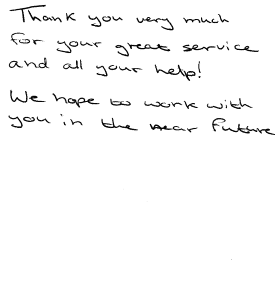 Thank you very much
for your great service
and all your help!
We hope to work with
you in the near future